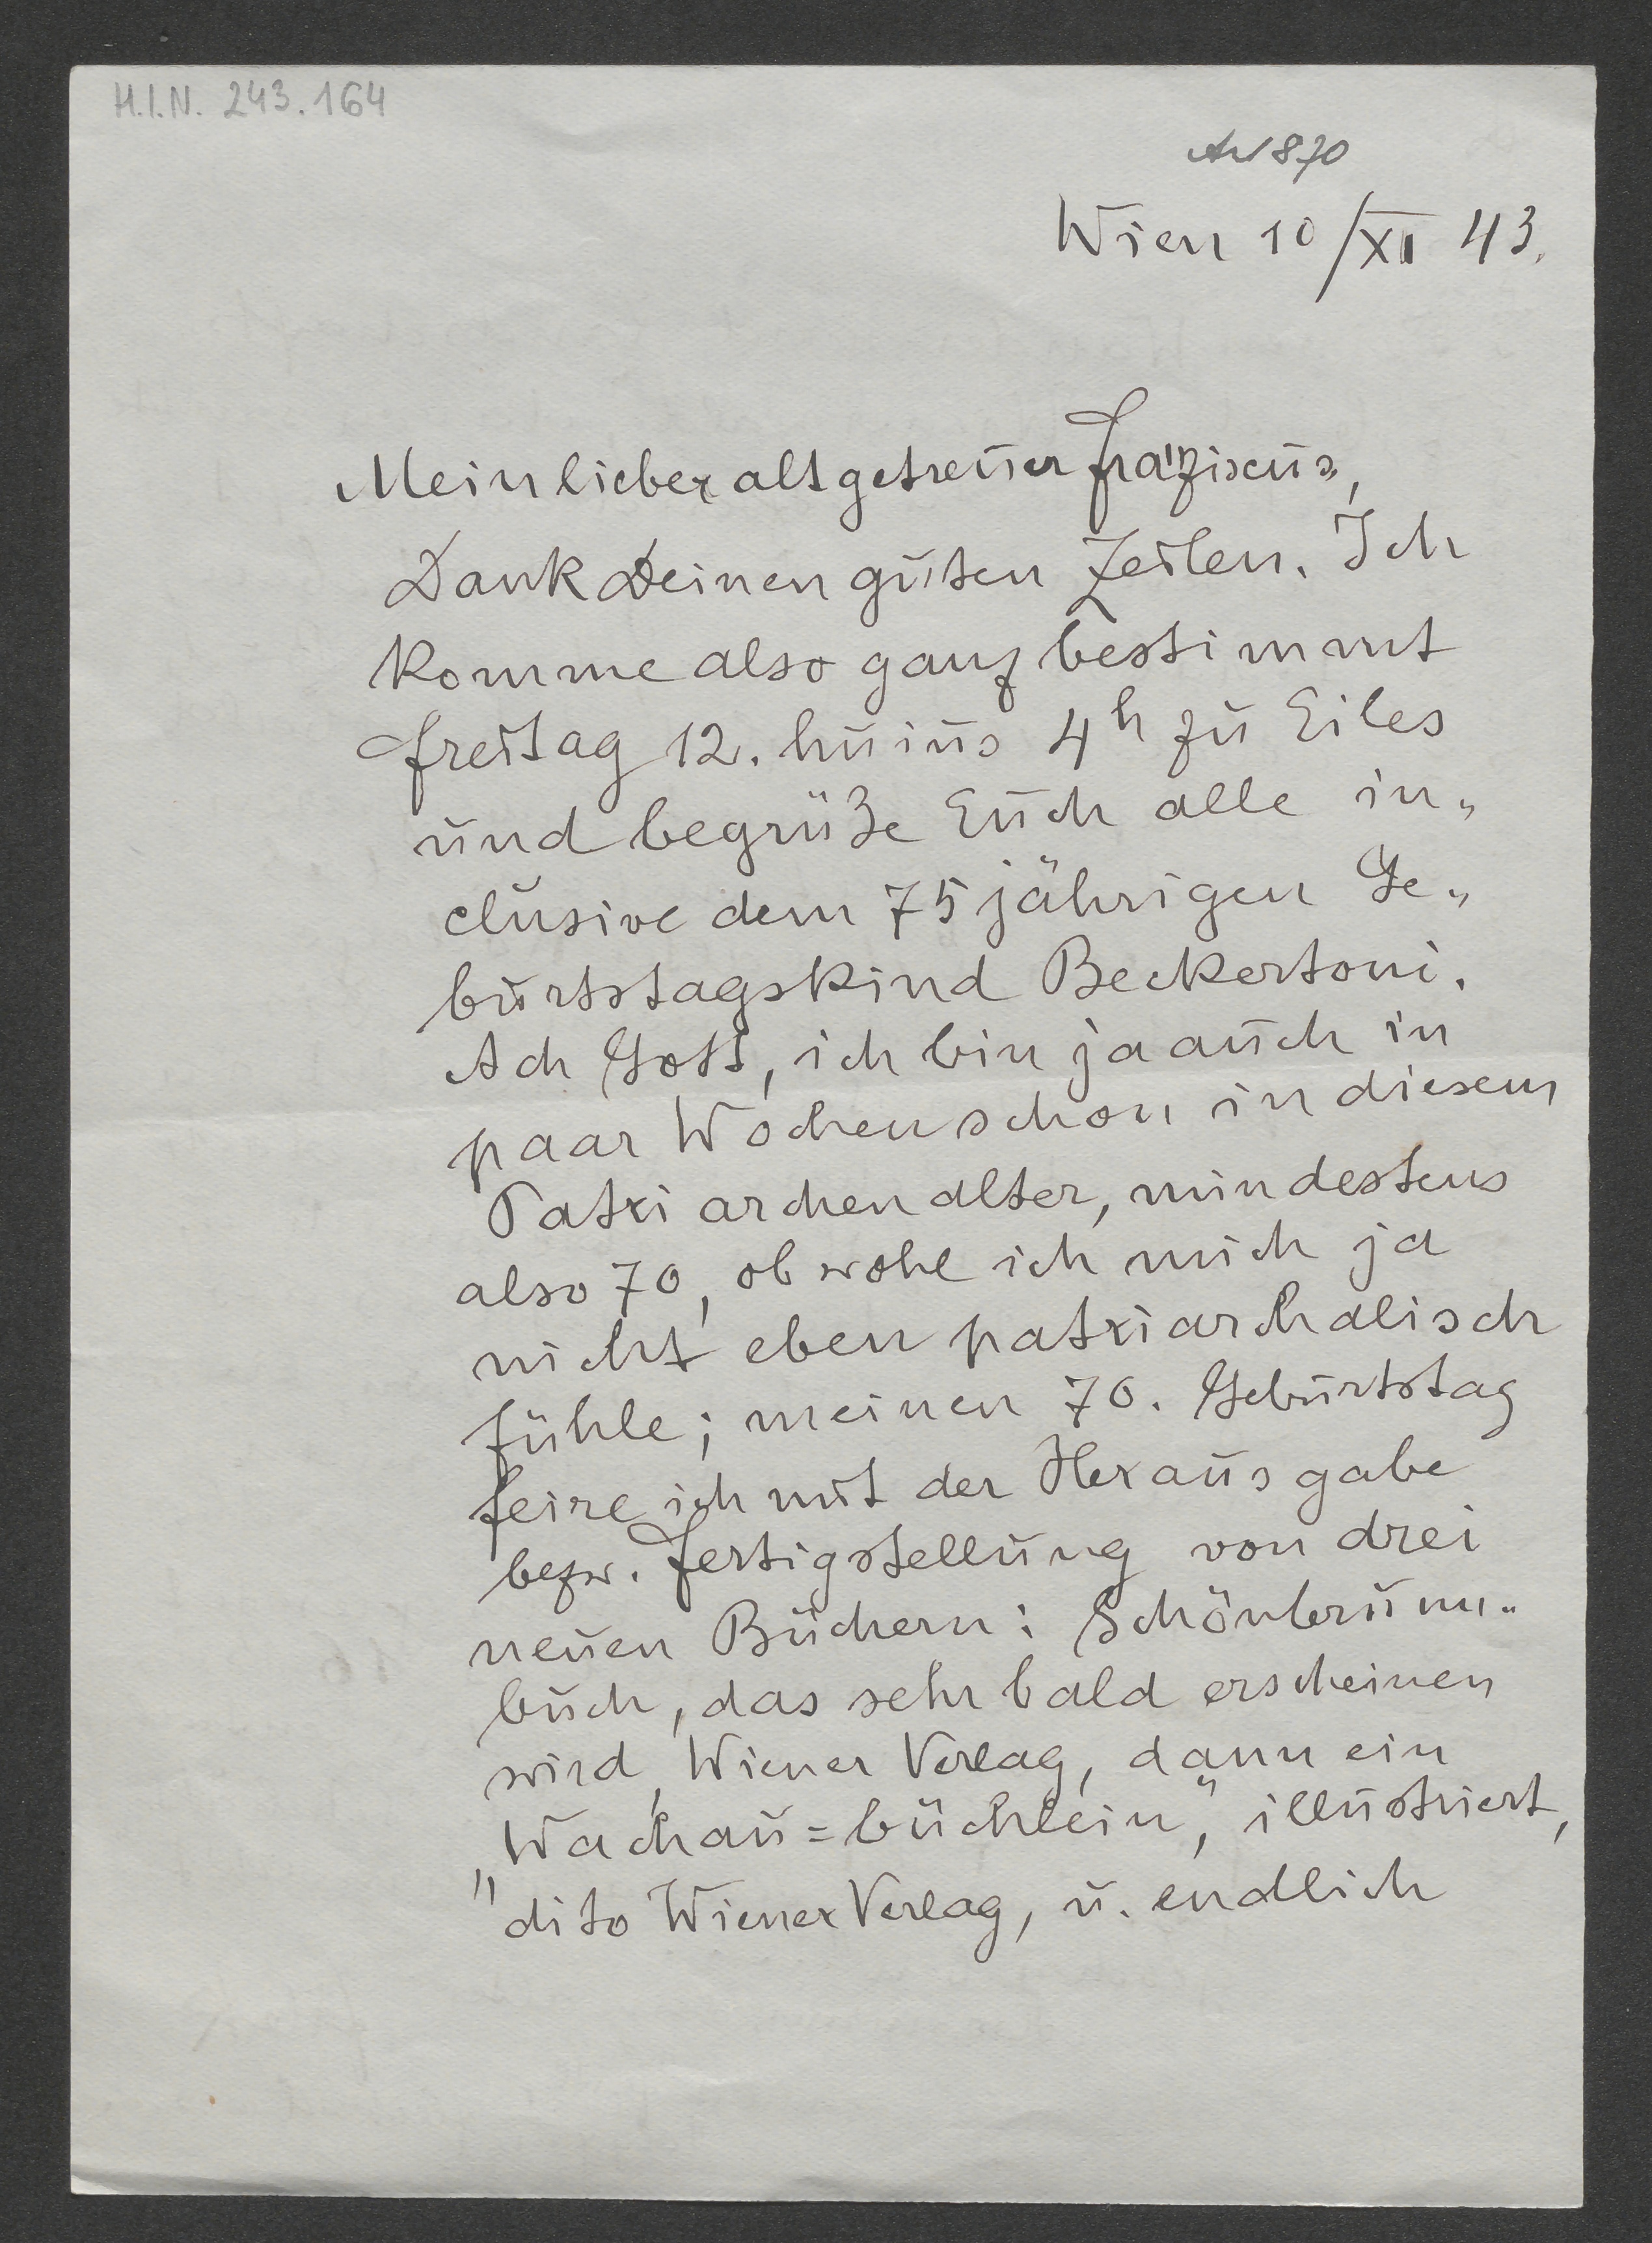 H.I.N. 243.164
AN 870
Wien 10/XI 43.
Mein lieber altgetreuer Franziscus,
Dank Deinen guten Zeilen. Ich
komme also ganz bestimmt
Freitag 12. huius 4h zu Eiles
und begrüße Euch alle in„
clusive dem 75jährigen Ge„
burtstagskind Beckertoni.
Ach Gott, ich bin ja auch in
paar Wochen schon in diesem
Patriarchenalter, mindestens
also 70, obwohl ich mich ja
nicht eben patriarchalisch
fühle; meinen 70. Geburtstag
feire ich mit der Herausgabe
bezw. Fertigstellung von drei
neuen Büchern: Schönbrunn„
buch, das sehr bald erscheinen
wird, Wiener Verlag, dann ein
„Wachau=büchlein", illustriert,
dito Wiener Verlag, u. endlich